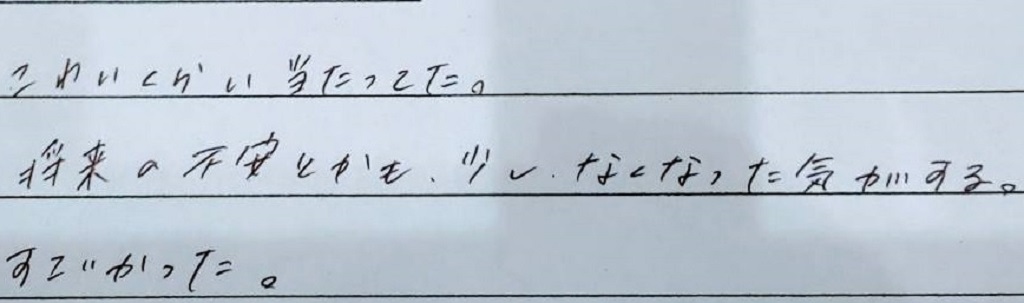 こわいくらい当たってた。
将来の不安とかも、少し、なくなった気がする。
すごかった。